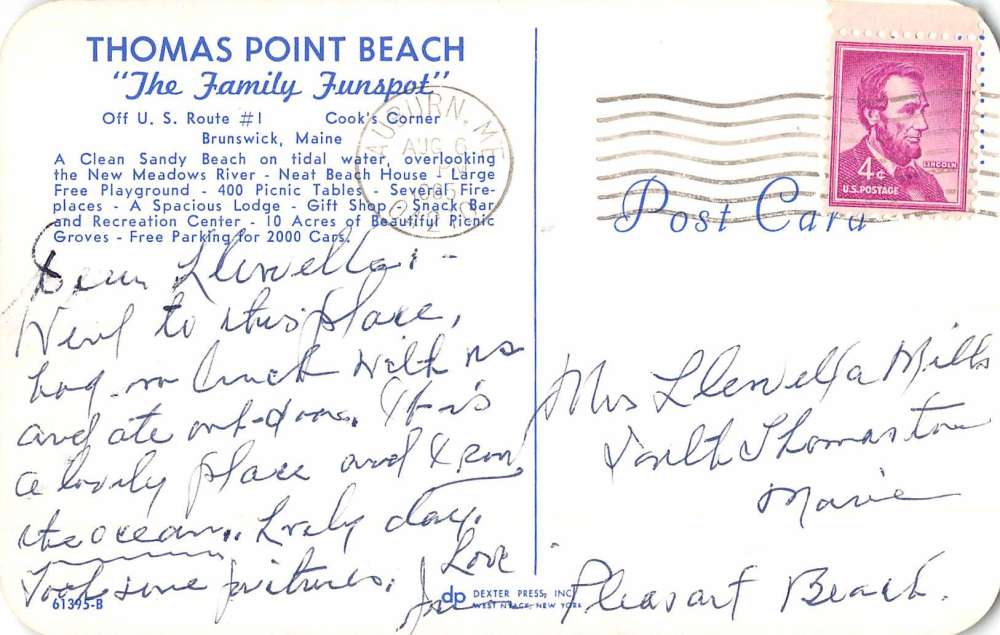 THOMAS POINT BEACH
"The Family Funspot"
Off U. S. Route #1 Cook's Corner
Brunswick, Maine
A Clean Sandy Beach on tidal water, overlooking
the New Meadows River - Neat Beach House - Large
Free Playground - 400 Picnic Tables - Several Fire-
places - A Spacious Lodge - Gift Shop - Snack Bar
and Recreation Center - 10 Acres of Beautiful Picnic
Groves - Free Parking for 2000 Cars.
AUBURN, ME
AUG 6
PM
Post Card
LINCOLN
4¢
U.S. POSTAGE
Dear Llewella:-
Went to this place,
had our lunch with us
and ate out-doors. It is
a lovely place and
the ocean. Lovely day.
Took some pictures.
Love
Mrs Llewella Mills
South Thomaston
Maine
Pleasant Beach.
61395-B
dp DEXTER PRESS, INC.
WEST NYACK, NEW YORK